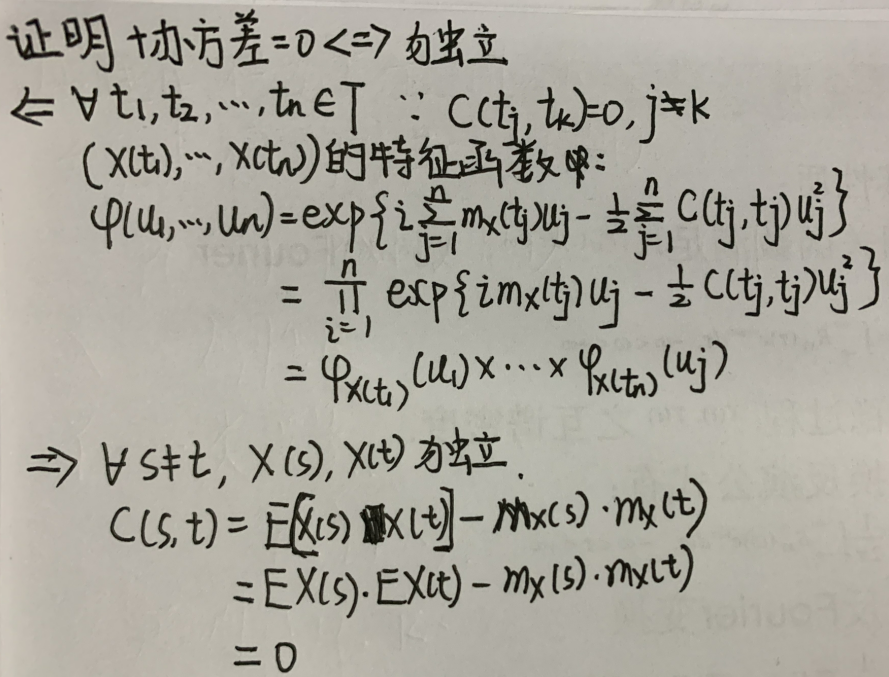 证明 协方差=0 <=> 为独立
⇐ ∀ t₁,t₂,…,tₙ∈T ∵ C(tⱼ,tₖ)=0, j≠k
(X(t₁),…,X(tₙ))的特征函数为:
φ(u₁,…,uₙ)=exp{i∑ⁿⱼ₌₁ mₓ(tⱼ)uⱼ - ½∑ⁿⱼ₌₁ C(tⱼ,tⱼ)uⱼ²}
= ∏ⁿᵢ₌₁ exp{imₓ(tⱼ)uⱼ - ½ C(tⱼ,tⱼ)uⱼ²}
= φ_X(t₁)(u₁)×…×φ_X(tₙ)(uⱼ)
⇒ ∀ s≠t, X(s), X(t) 为独立.
C(s,t) = E[X(s) X(t)] - mₓ(s)·mₓ(t)
= EX(s)·EX(t) - mₓ(s)·mₓ(t)
= 0